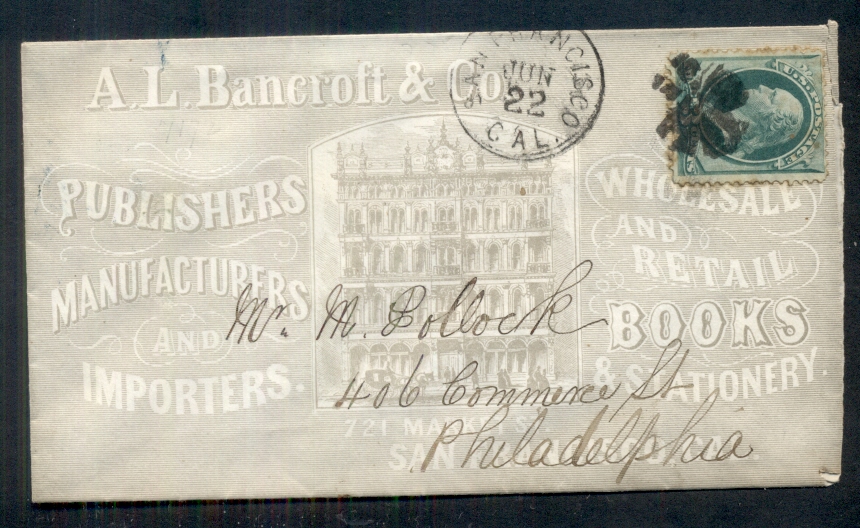 A.L. Bancroft & Co.
SAN FRANCISCO
JUN
22
CAL.
U.S. POSTAGE
PUBLISHERS
MANUFACTURERS
AND
IMPORTERS.
WHOLESALE
AND
RETAIL
BOOKS
& STATIONERY.
Mr. M. Pollock
406 Commerce St
Philadelphia
721 MARKET ST.
SAN